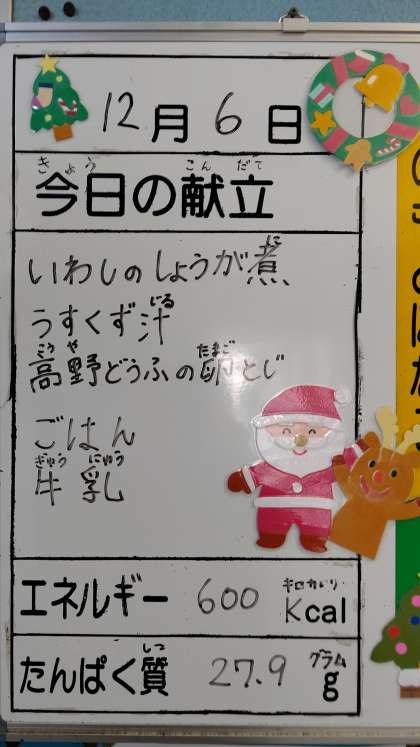 12月6日
きょう こんだて
今日の献立
に
いわしのしょうが煮
じる
うすくず汁
こうや たまご
高野どうふの卵とじ
ごはん
ぎゅうにゅう
牛乳
キロカロリー
エネルギー 600 Kcal
しつ グラム
たんぱく質 27.9 g